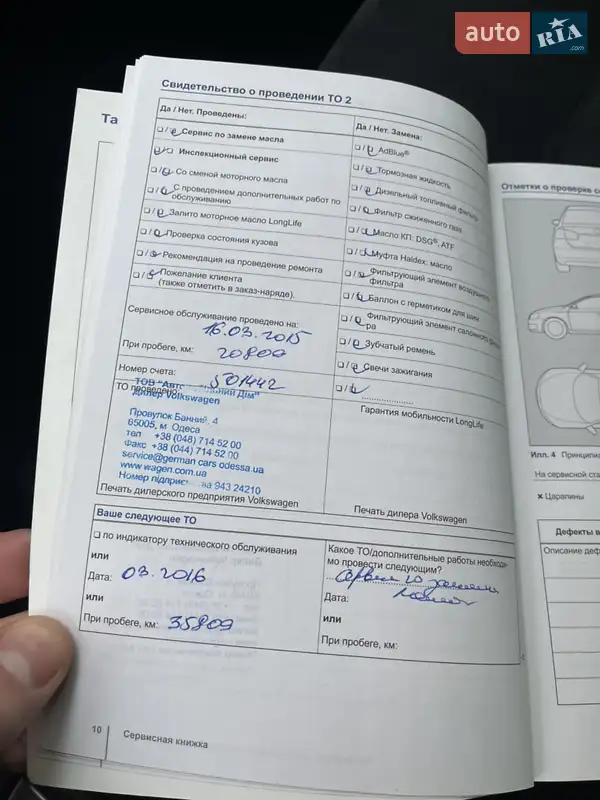 auto RIA .com
Та
Свидетельство о проведении ТО 2
Да / Нет. Проведены:
Да / Нет. Замена:
Сервис по замене масла
Инспекционный сервис
Со сменой моторного масла
С проведением дополнительных работ по
обслуживанию
Залито моторное масло LongLife
Проверка состояния кузова
Рекомендация на проведение ремонта
Пожелание клиента
(также отметить в заказ-наряде).
AdBlue®
Тормозная жидкость
Дизельный топливный фильтр
Фильтр сжиженного газа
Масло КП: DSG®, ATF
Муфта Haldex: масло
Фильтрующий элемент воздушного
фильтра
Баллон с герметиком для шин
Фильтрующий элемент салонного
ра
Зубчатый ремень
Свечи зажигания
Сервисное обслуживание проведено на:
16.03.2015
При пробеге, км: 20809
Номер счета: 501442
ТО проведено:
ТОВ "Авто Дім"
дилер Volkswagen
Провулок Банний, 4
65005, м. Одеса
тел +38 (048) 714 52 00
Факс +38 (044) 714 52 00
service@german cars odessa.ua
www.wagen.com.ua
Номер підприє 943 24210
Печать дилерского предприятия Volkswagen
Гарантия мобильности LongLife
Печать дилера Volkswagen
Ваше следующее ТО
по индикатору технического обслуживания
или
Дата: 03.2016
или
При пробеге, км: 35809
Какое ТО/дополнительные работы необходи-
мо провести следующим?
Сервис по замене
масла
Дата:
или
При пробеге, км:
10
Сервисная книжка
Отметки о проверке
Илл. 4 Принципиа
На сервисной ста
× Царапины
Дефекты
Описание деф